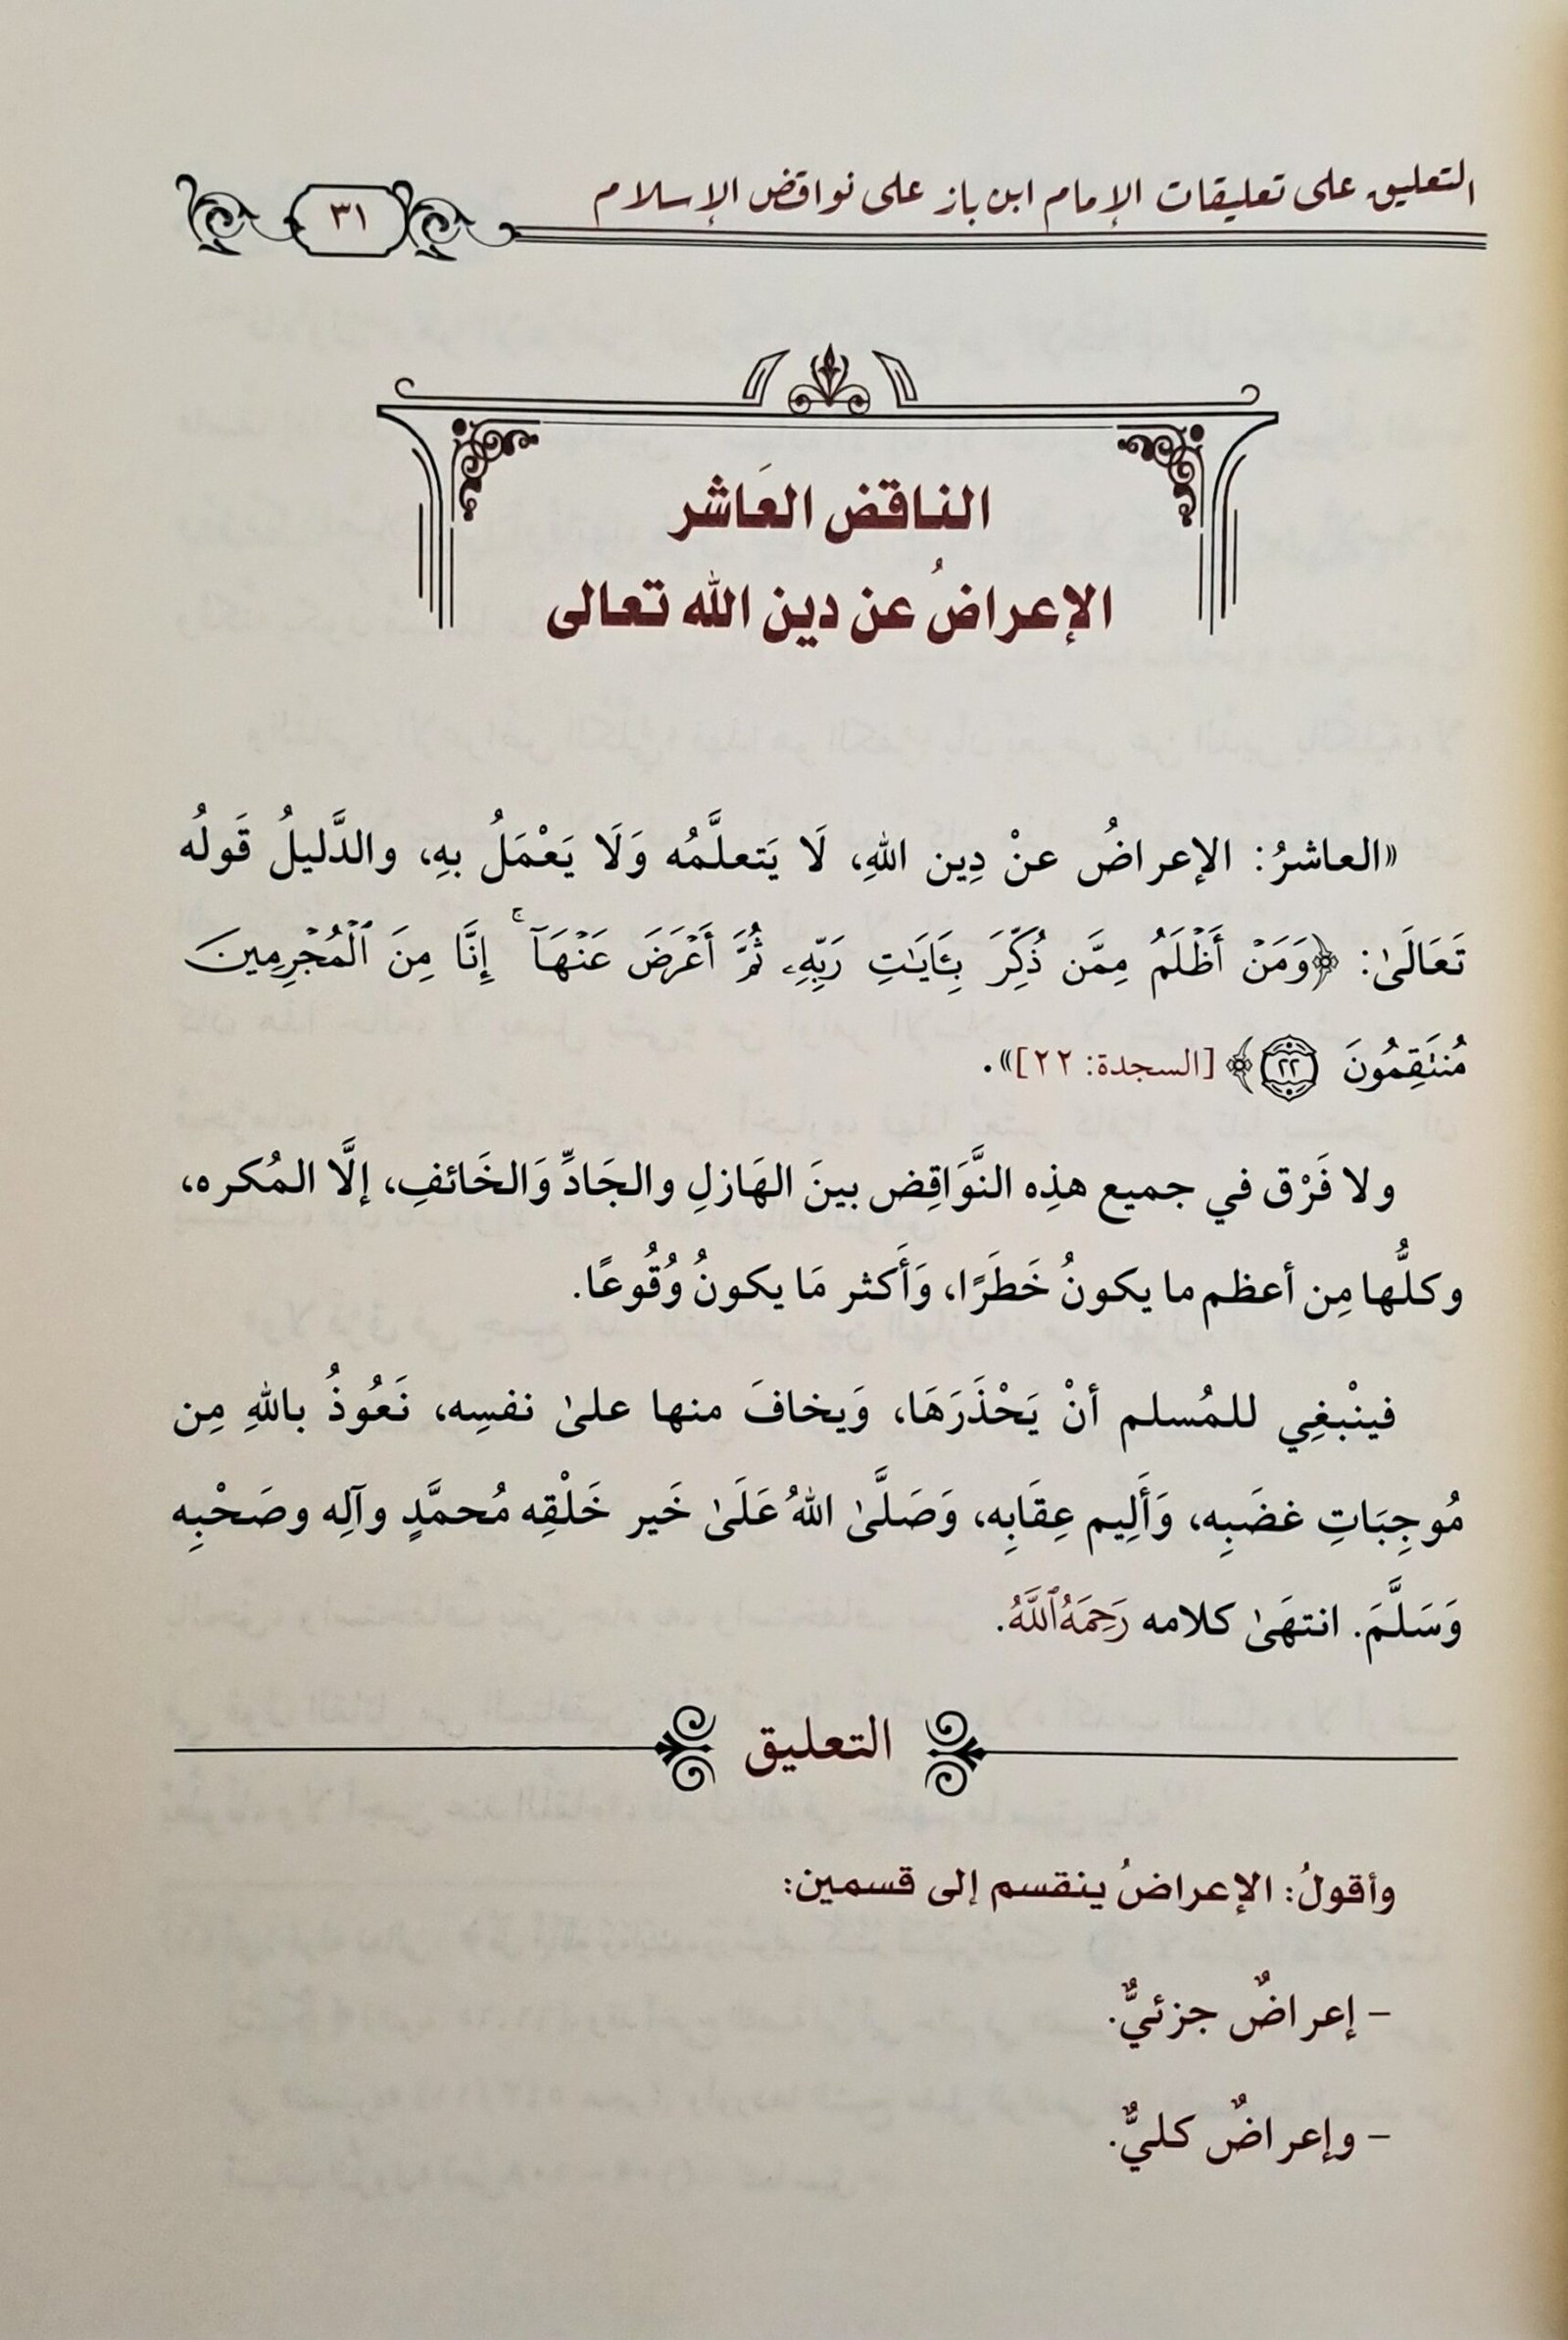 التعليق على تعليقات الإمام ابن باز على نواقض الإسلام
٣١
الناقض العَاشر
الإعراضُ عن دين الله تعالى
«العاشرُ: الإعراضُ عنْ دِين اللهِ، لَا يَتعلَّمُه وَلَا يَعْمَلُ بهِ، والدَّليلُ قَولُه
تَعَالَىٰ: ﴿وَمَنۡ أَظۡلَمُ مِمَّن ذُكِّرَ بِـَٔايَٰتِ رَبِّهِۦ ثُمَّ أَعۡرَضَ عَنۡهَآۚ إِنَّا مِنَ ٱلۡمُجۡرِمِينَ
مُنتَقِمُونَ ٢٢﴾ [السجدة: ٢٢]».
ولا فَرْق في جميع هذِه النَّوَاقِض بينَ الهَازلِ والجَادِّ وَالخَائفِ، إلَّا المُكره،
وكلُّها مِن أعظم ما يكونُ خَطَرًا، وَأَكثر مَا يكونُ وُقُوعًا.
فينْبغِي للمُسلم أنْ يَحْذَرَهَا، وَيخافَ منها علىٰ نفسِه، نَعُوذُ باللهِ مِن
مُوجِبَاتِ غضَبِه، وَأَلِيم عِقَابِه، وَصَلَّىٰ اللهُ عَلَىٰ خَير خَلْقِه مُحمَّدٍ وآلِه وصَحْبِه
وَسَلَّمَ. انتهَىٰ كلامه رَحِمَهُ ٱللَّهُ.
التعليق
وأقولُ: الإعراضُ ينقسم إلى قسمين:
- إعراضٌ جزئيٌّ.
- وإعراضٌ كليٌّ.